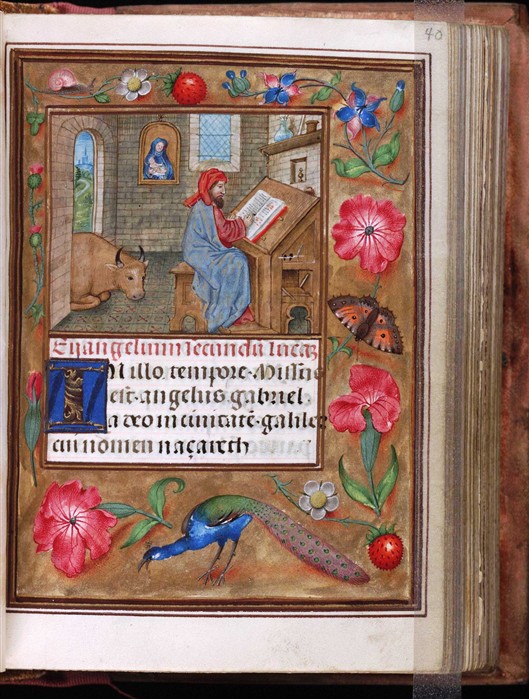 40
Euangelium secundū lucā
IN illo tempore. Missus
est. angelus. gabriel
a deo in ciuitatē. galilee
cui nomen naçareth